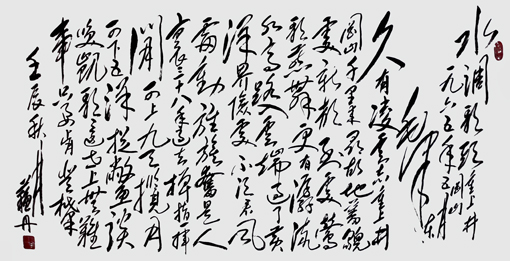 水调歌头 重上井冈山
一九六五年五月
毛泽东
久有凌云志重上井
冈山千里来寻故地旧貌
变新颜到处莺
歌燕舞更有潺潺流
水高路入云端过了黄
洋界险处不须看风
雷动旌旗奋是人
寰三十八年过去弹指一挥
间可上九天揽月
可下五洋捉鳖谈
笑凯歌还世上无难
事只要肯登攀
壬辰秋月